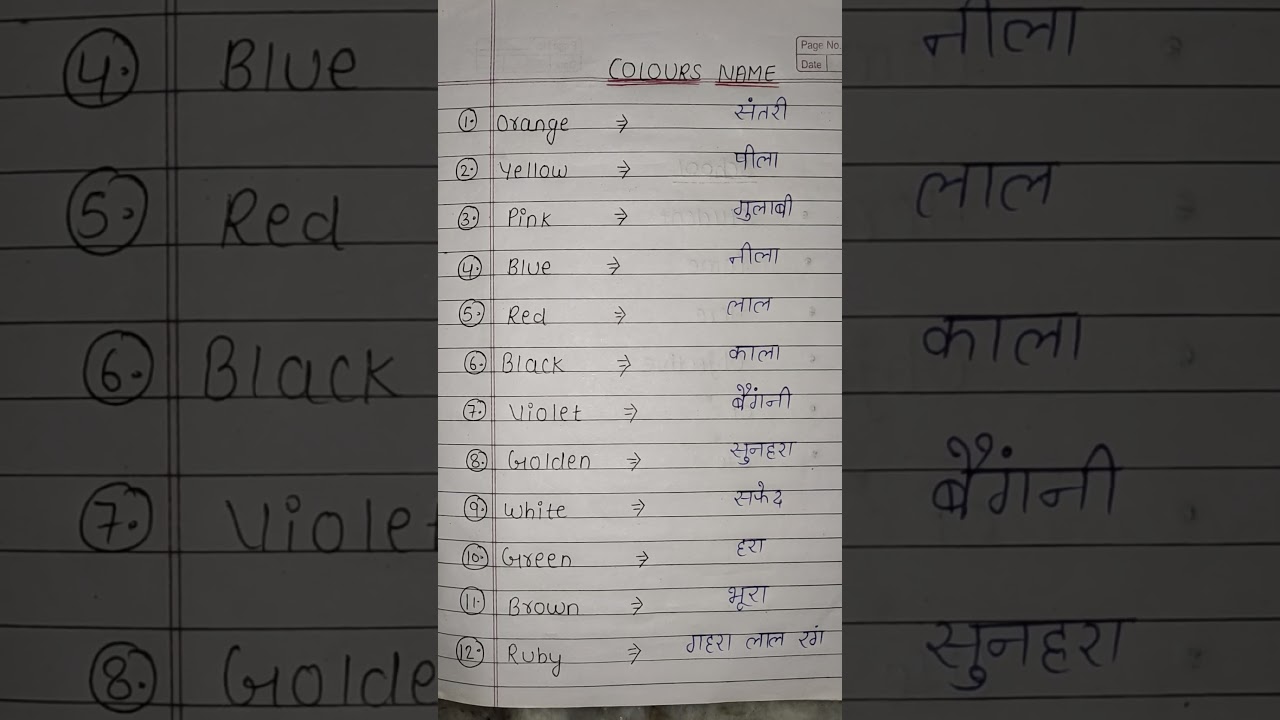 Page No.
Date
COLOURS NAME
1. Orange ⇒ संतरी
2. Yellow ⇒ पीला
3. Pink ⇒ गुलाबी
4. Blue ⇒ नीला
5. Red ⇒ लाल
6. Black ⇒ काला
7. Violet ⇒ बैंगनी
8. Golden ⇒ सुनहरा
9. White ⇒ सफेद
10. Green ⇒ हरा
11. Brown ⇒ भूरा
12. Ruby ⇒ गहरा लाल रंग
4. Blue
5. Red
6. Black
7. Violet
8. Golde
नीला
लाल
काला
बैंगनी
सुनहरा